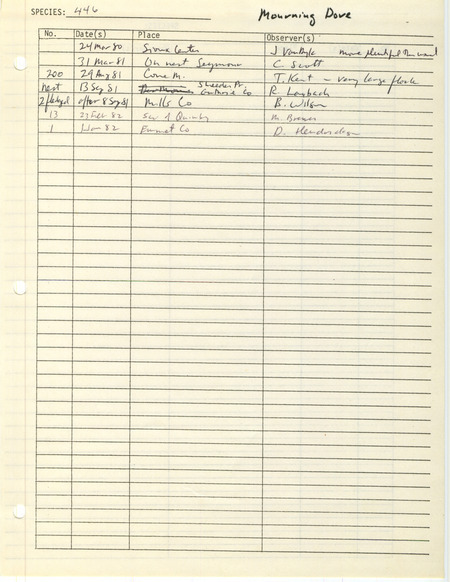 SPECIES: 446 Mourning Dove
No. Date(s) Place Observer(s)
24 Mar 80 Sioux Center J VanDyk more plentiful than usual
31 Mar 81 On nest Seymour C. Scott
200 29 Aug 81 Cone M. T. Kent - very large flock
nest 13 Sep 81 Sheeder Pr. Guthrie Co R. Laubach
2 fledged after 8 Sep 81 Mills Co B. Wilson
13 23 Feb 82 Quimby M. Brewer
1 Jan 82 Emmet Co D. Henderson